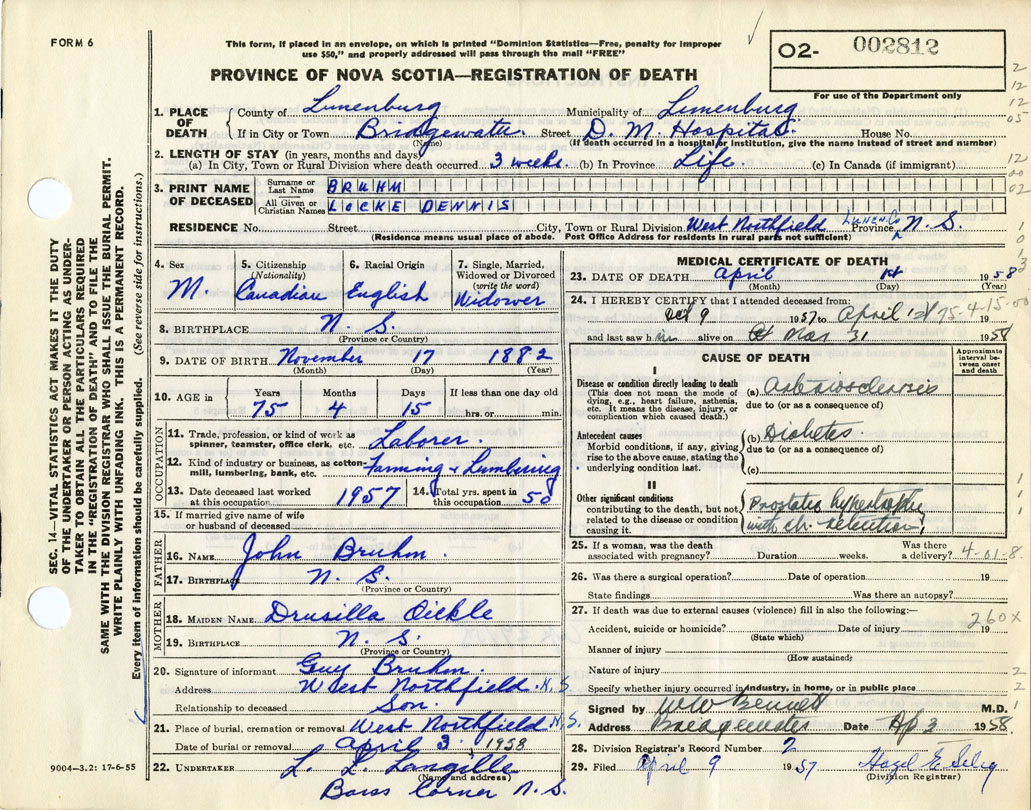 FORM 6
This form, if placed in an envelope, on which is printed "Dominion Statistics—Free, penalty for improper
use $50," and properly addressed will pass through the mail "FREE"
PROVINCE OF NOVA SCOTIA—REGISTRATION OF DEATH
02- 002812
For use of the Department only
SEC. 14—VITAL STATISTICS ACT MAKES IT THE DUTY
OF THE UNDERTAKER OR PERSON ACTING AS UNDER-
TAKER TO OBTAIN ALL THE PARTICULARS REQUIRED
IN THE "REGISTRATION OF DEATH" AND TO FILE THE
SAME WITH THE DIVISION REGISTRAR WHO SHALL ISSUE THE BURIAL PERMIT.
WRITE PLAINLY WITH UNFADING INK. THIS IS A PERMANENT RECORD.
Every item of information should be carefully supplied. (See reverse side for instructions.)
1. PLACE OF DEATH
County of Lunenburg Municipality of Lunenburg
If in City or Town Bridgewater Street D. M. Hospital House No.
(Name) (If death occurred in a hospital or institution, give the name instead of street and number)
2. LENGTH OF STAY (in years, months and days)
(a) In City, Town or Rural Division where death occurred 3 weeks (b) In Province Life (c) In Canada (if immigrant)
3. PRINT NAME OF DECEASED
Surname or Last Name BRUHM
All Given or Christian Names LOCKE DENNIS
RESIDENCE No. Street City, Town or Rural Division West Northfield Lunen. Co. Province N. S.
(Residence means usual place of abode. Post Office Address for residents in rural parts not sufficient)
4. Sex M.
5. Citizenship (Nationality) Canadian
6. Racial Origin English
7. Single, Married, Widowed or Divorced (write the word) Widower
8. BIRTHPLACE N. S.
(Province or Country)
9. DATE OF BIRTH November 17 1882
(Month) (Day) (Year)
10. AGE in Years 75 Months 4 Days 15 If less than one day old hrs. or min.
OCCUPATION
11. Trade, profession, or kind of work as spinner, teamster, office clerk, etc. Laborer.
12. Kind of industry or business, as cotton-mill, lumbering, bank, etc. Farming & Lumbering
13. Date deceased last worked at this occupation 1957
14. Total yrs. spent in this occupation 50
15. If married give name of wife or husband of deceased
FATHER
16. NAME John Bruhm.
17. BIRTHPLACE N. S.
(Province or Country)
MOTHER
18. MAIDEN NAME Drusilla Oickle
19. BIRTHPLACE N. S.
(Province or Country)
20. Signature of informant Guy Bruhm.
Address West Northfield N. S.
Relationship to deceased Son.
21. Place of burial, cremation or removal West Northfield N.S.
Date of burial or removal April 3, 1958
22. UNDERTAKER L. L. Langille
(Name and address)
Barss Corner N. S.
9004—3.2: 17-6-55
MEDICAL CERTIFICATE OF DEATH
23. DATE OF DEATH April 1st 1958
(Month) (Day) (Year)
24. I HEREBY CERTIFY that I attended deceased from:
Oct 9 1957 to April 1st 19
75-4-15-00
and last saw him alive on Mar 31 1958
CAUSE OF DEATH
Approximate interval between onset and death
I
Disease or condition directly leading to death (a) Arteriosclerosis
(This does not mean the mode of dying, e.g., heart failure, asthenia, etc. It means the disease, injury, or complication which caused death.)
due to (or as a consequence of)
Antecedent causes
Morbid conditions, if any, giving rise to the above cause, stating the underlying condition last.
(b) Diabetes.
due to (or as a consequence of)
(c)
II
Other significant conditions contributing to the death, but not related to the disease or condition causing it.
Prostatic hypertrophy
with chr. retention,
25. If a woman, was the death associated with pregnancy? Duration weeks. Was there a delivery? 4-01-8
26. Was there a surgical operation? Date of operation 19
State findings Was there an autopsy?
27. If death was due to external causes (violence) fill in also the following:—
Accident, suicide or homicide? Date of injury 19
260X
(State which)
Manner of injury
(How sustained)
Nature of injury
Specify whether injury occurred in industry, in home, or in public place
Signed by WW Bennett M.D.
Address Bridgewater Date Ap 3 1958.
28. Division Registrar's Record Number 2
29. Filed April 9 1957 Hazel E. Selig
(Division Registrar)